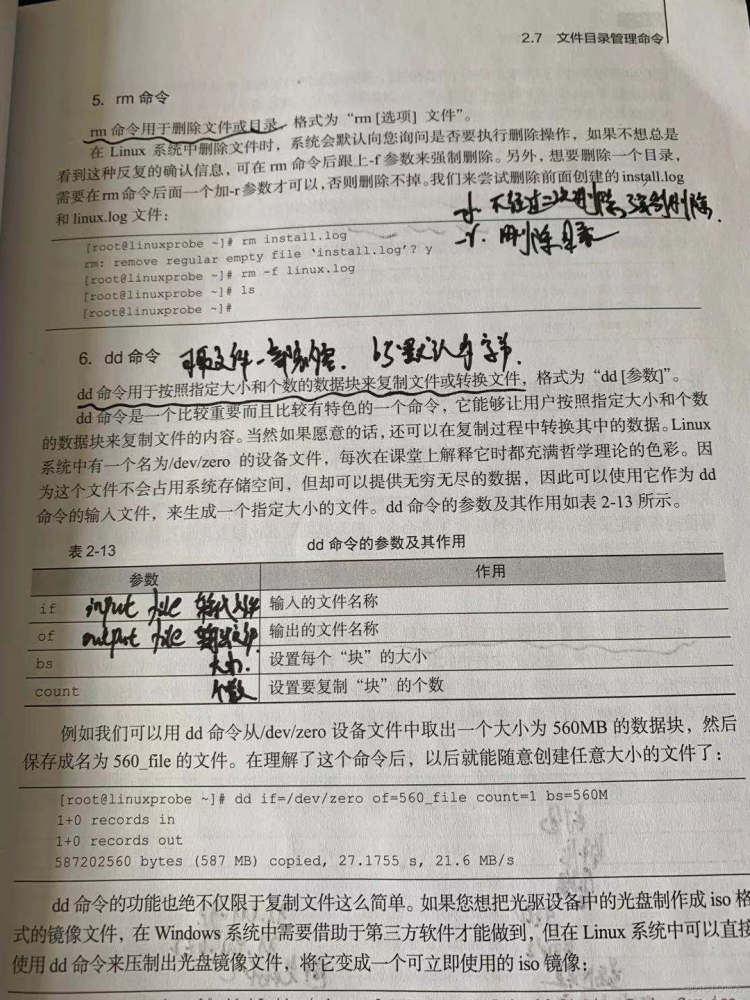 2.7 文件目录管理命令
5. rm 命令
rm 命令用于删除文件或目录，格式为“rm [选项] 文件”。
在 Linux 系统中删除文件时，系统会默认向您询问是否要执行删除操作，如果不想总是
看到这种反复的确认信息，可在 rm 命令后跟上-f 参数来强制删除。另外，想要删除一个目录，
需要在 rm 命令后面一个加-r 参数才可以，否则删除不掉。我们来尝试删除前面创建的 install.log
和 linux.log 文件：
-f. 不经过二次删除，强制删除.
-r. 删除目录
[root@linuxprobe ~]# rm install.log
rm: remove regular empty file ‘install.log’? y
[root@linuxprobe ~]# rm -f linux.log
[root@linuxprobe ~]# ls
[root@linuxprobe ~]#
6. dd 命令 可取文件一部分内容. bs默认为字节.
dd 命令用于按照指定大小和个数的数据块来复制文件或转换文件，格式为“dd [参数]”。
dd 命令是一个比较重要而且比较有特色的一个命令，它能够让用户按照指定大小和个数
的数据块来复制文件的内容。当然如果愿意的话，还可以在复制过程中转换其中的数据。Linux
系统中有一个名为/dev/zero 的设备文件，每次在课堂上解释它时都充满哲学理论的色彩。因
为这个文件不会占用系统存储空间，但却可以提供无穷无尽的数据，因此可以使用它作为 dd
命令的输入文件，来生成一个指定大小的文件。dd 命令的参数及其作用如表 2-13 所示。
表 2-13 dd 命令的参数及其作用
参数 作用
if input file 输入文件 输入的文件名称
of output file 输出文件 输出的文件名称
bs 大小. 设置每个“块”的大小
count 个数 设置要复制“块”的个数
例如我们可以用 dd 命令从/dev/zero 设备文件中取出一个大小为 560MB 的数据块，然后
保存成名为 560_file 的文件。在理解了这个命令后，以后就能随意创建任意大小的文件了：
[root@linuxprobe ~]# dd if=/dev/zero of=560_file count=1 bs=560M
1+0 records in
1+0 records out
587202560 bytes (587 MB) copied, 27.1755 s, 21.6 MB/s
dd 命令的功能也绝不仅限于复制文件这么简单。如果您想把光驱设备中的光盘制作成 iso 格
式的镜像文件，在 Windows 系统中需要借助于第三方软件才能做到，但在 Linux 系统中可以直接
使用 dd 命令来压制出光盘镜像文件，将它变成一个可立即使用的 iso 镜像：